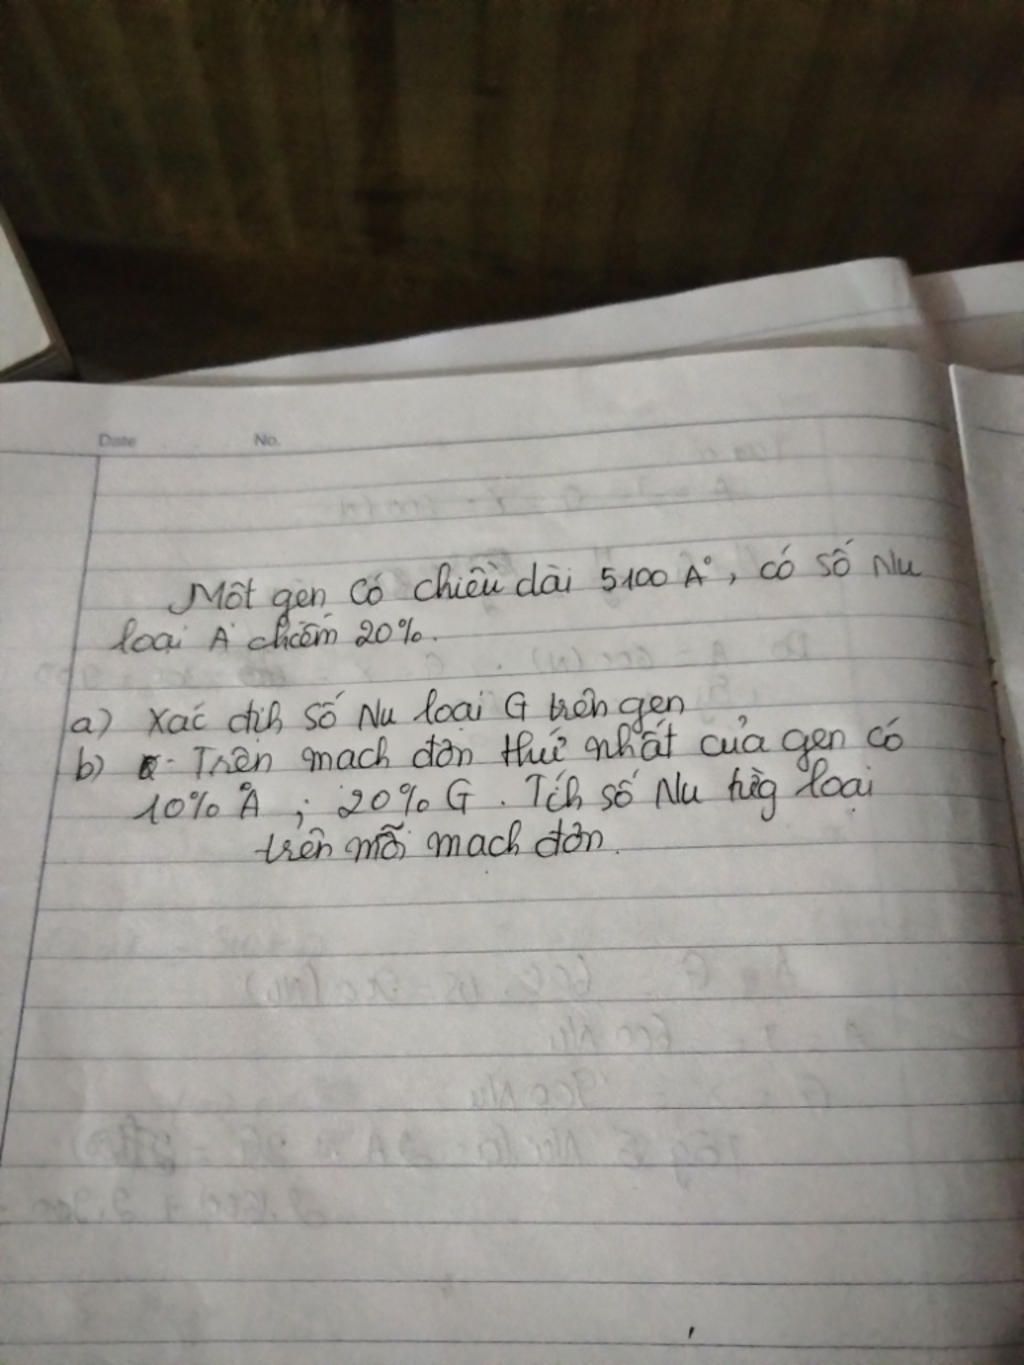 Date No.
Một gen có chiều dài 5100 A°, có số Nu
loại A chiếm 20%.
a) Xác địh số Nu loại G trên gen
b) Trên mạch đơn thứ nhất của gen có
10% A ; 20% G. Tíh số Nu từg loại
trên mỗi mạch đơn.